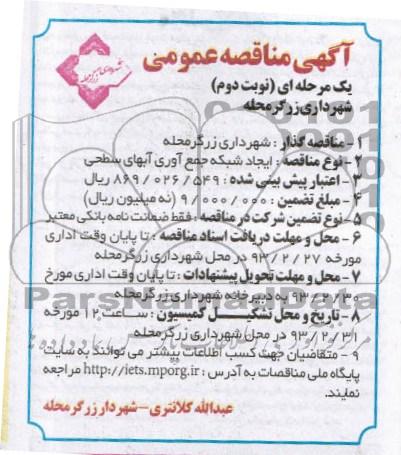 آگهی مناقصه عمومی
یک مرحله ای (نوبت دوم)
شهرداری زرگرمحله
۱- مناقصه گذار : شهرداری زرگرمحله
۲- نوع مناقصه : ایجاد شبکه جمع آوری آبهای سطحی
۳- اعتبار پیش بینی شده : ۸۶۹/۰۲۶/۵۴۹ ریال
۴- مبلغ تضمین : ۹/۰۰۰/۰۰۰ (نه میلیون ریال)
۵- نوع تضمین شرکت در مناقصه : فقط ضمانت نامه بانکی معتبر
۶- محل و مهلت دریافت اسناد مناقصه : تا پایان وقت اداری
مورخه ۹۳/۲/۲۷ در محل شهرداری زرگرمحله
۷- محل و مهلت تحویل پیشنهادات : تا پایان وقت اداری مورخ
۹۳/۲/۳۰ به دبیرخانه شهرداری زرگرمحله
۸- تاریخ و محل تشکیل کمیسیون : ساعت ۱۲ مورخه
۹۳/۲/۳۱ در محل شهرداری زرگرمحله
۹- متقاضیان جهت کسب اطلاعات بیشتر می توانند به سایت
پایگاه ملی مناقصات به آدرس : http://iets.mporg.ir مراجعه
نمایند.
عبدالله کلانتری - شهردار زرگرمحله